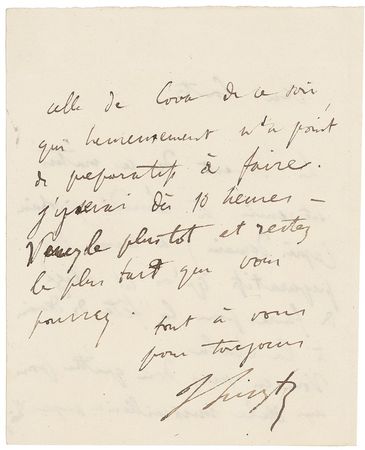 celle de Cova de ce soir,
qui heureusement n'a point
de preparatifs à faire.
j'y serai dès 10 heures –
Venez le plustot et restez
le plus tard que vous
pourrez.
tout à vous
pour toujours
F Liszt